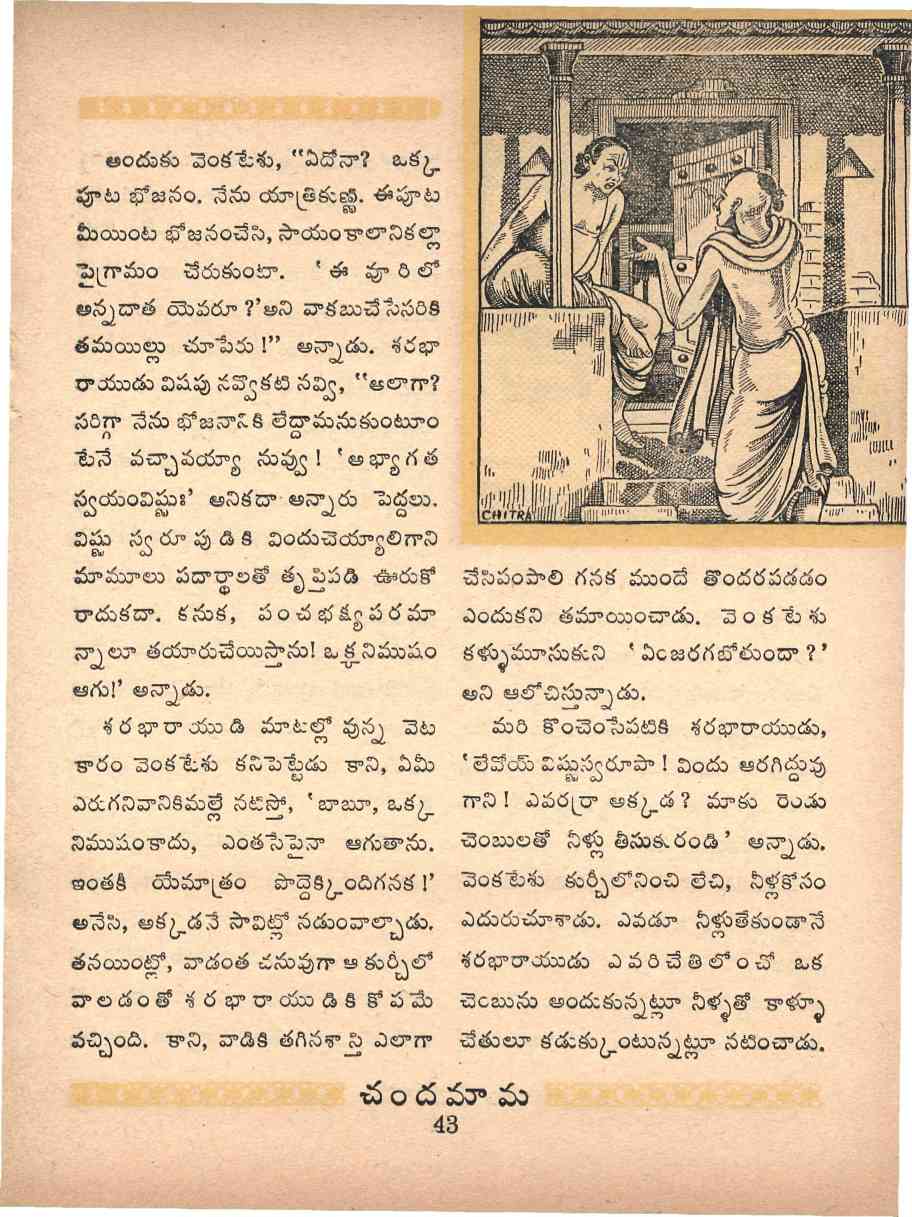 అందుకు వెంకటేశు, “ఏదోనా? ఒక్క
పూట భోజనం. నేను యాత్రికుణ్ణి. ఈపూట
మీయింట భోజనంచేసి, సాయంకాలానికల్లా
పైగ్రామం చేరుకుంటా. ‘ఈ వూరిలో
అన్నదాత యెవరూ?’అని వాకబుచేసేసరికి
తమయిల్లు చూపేరు!” అన్నాడు. శరభా
రాయుడు విషపు నవ్వొకటి నవ్వి, “అలాగా?
సరిగ్గా నేను భోజనానికి లేద్దామనుకుంటూం
టేనే వచ్చావయ్యా నువ్వు! ‘అభ్యాగత
స్వయంవిష్ణుః’ అనికదా అన్నారు పెద్దలు.
విష్ణు స్వరూపుడికి విందుచెయ్యాలిగాని
మామూలు పదార్థాలతో తృప్తిపడి ఊరుకో
రాదుకదా. కనుక, పంచభక్ష్యపరమా
న్నాలూ తయారుచేయిస్తాను! ఒక్కనిముషం
ఆగు!’ అన్నాడు.
శరభారాయుడి మాటల్లో వున్న వెట
కారం వెంకటేశు కనిపెట్టేడు కాని, ఏమీ
ఎరుగనివానికిమల్లే నటిస్తో, ‘బాబూ, ఒక్క
నిముషంకాదు, ఎంతసేపైనా ఆగుతాను.
ఇంతకీ యేమాత్రం పొద్దెక్కిందిగనక!’
అనేసి, అక్కడనే సావిట్లో నడుంవాల్చాడు.
తనయింట్లో, వాడంత చనువుగా ఆ కుర్చీలో
వాలడంతో శరభారాయుడికి కోపమే
వచ్చింది. కాని, వాడికి తగినశాస్తి ఎలాగా
CHITRA
చేసిపంపాలి గనక ముందే తొందరపడడం
ఎందుకని తమాయించాడు. వెంకటేశు
కళ్ళుమూసుకుని ‘ఏంజరగబోతుందా?’
అని ఆలోచిస్తున్నాడు.
మరి కొంచెంసేపటికి శరభారాయుడు,
‘లేవోయ్ విష్ణుస్వరూపా! విందు ఆరగిద్దువు
గాని! ఎవర్రా అక్కడ? మాకు రెండు
చెంబులతో నీళ్లు తీసుకురండి’ అన్నాడు.
వెంకటేశు కుర్చీలోనించి లేచి, నీళ్లకోసం
ఎదురుచూశాడు. ఎవడూ నీళ్లుతేకుండానే
శరభారాయుడు ఎవరిచేతిలోంచో ఒక
చెంబును అందుకున్నట్లూ నీళ్ళతో కాళ్ళూ
చేతులూ కడుక్కుంటున్నట్లూ నటించాడు.
చందమామ
43